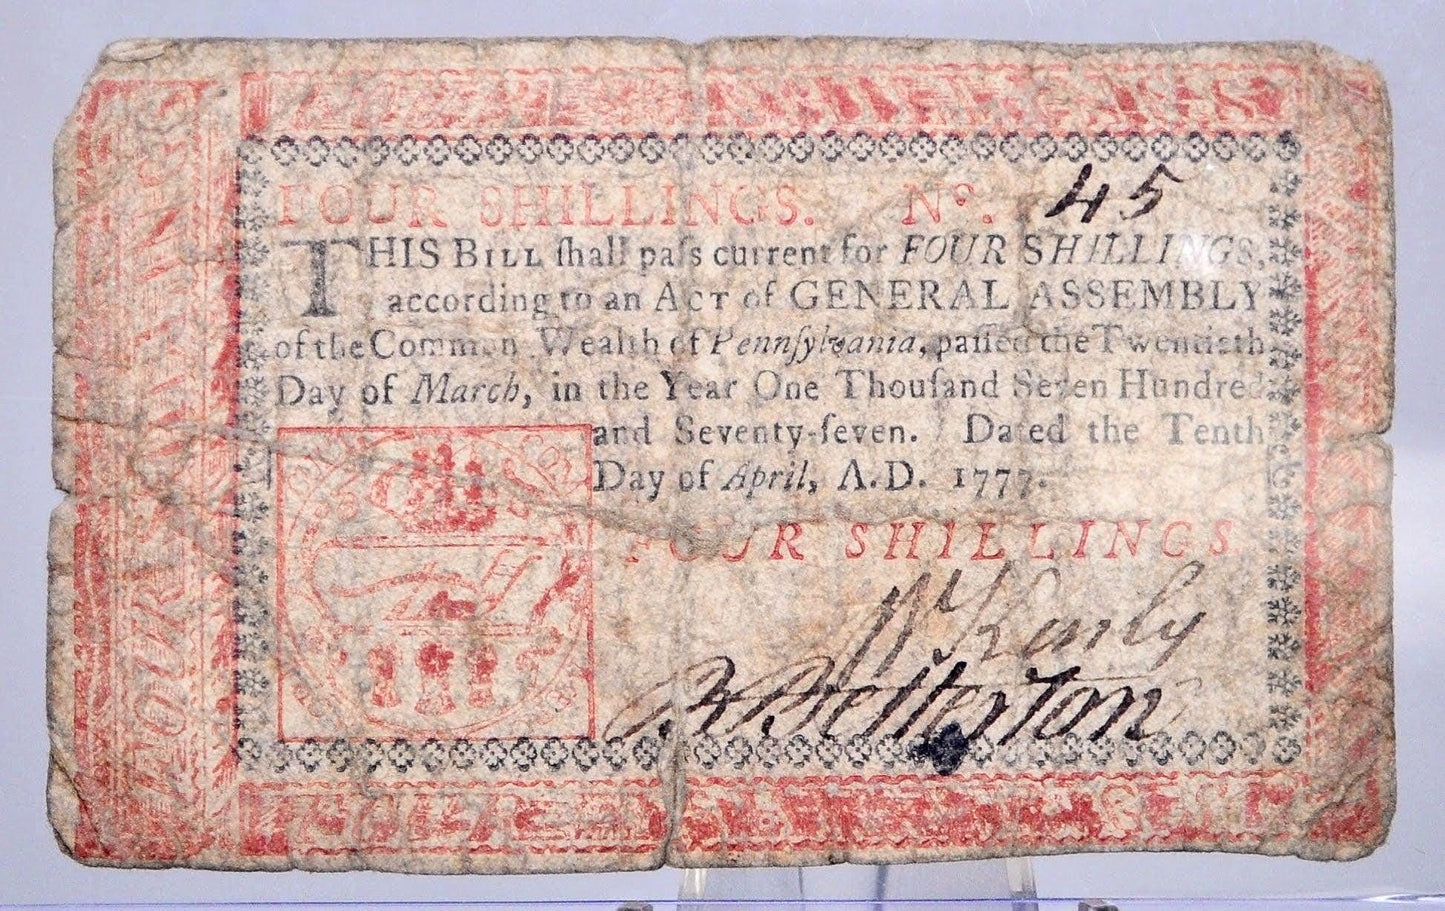 FOUR SHILLINGS. No. 45
THIS BILL ſhall paſs current for FOUR SHILLINGS,
according to an ACT of GENERAL ASSEMBLY
of the Common Wealth of Pennſylvania, paſſed the Twentieth
Day of March, in the Year One Thouſand Seven Hundred
and Seventy-ſeven. Dated the Tenth
Day of April, A.D. 1777.
FOUR SHILLINGS
FOUR SHILLINGS